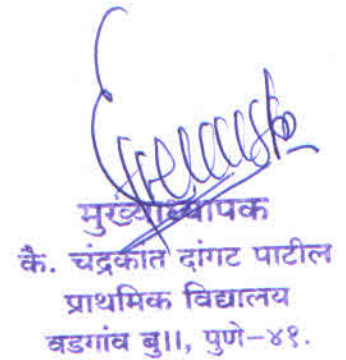 मुख्याध्यापक
कै. चंद्रकांत दांगट पाटील
प्राथमिक विद्यालय
वडगांव बु।।, पुणे–४१.